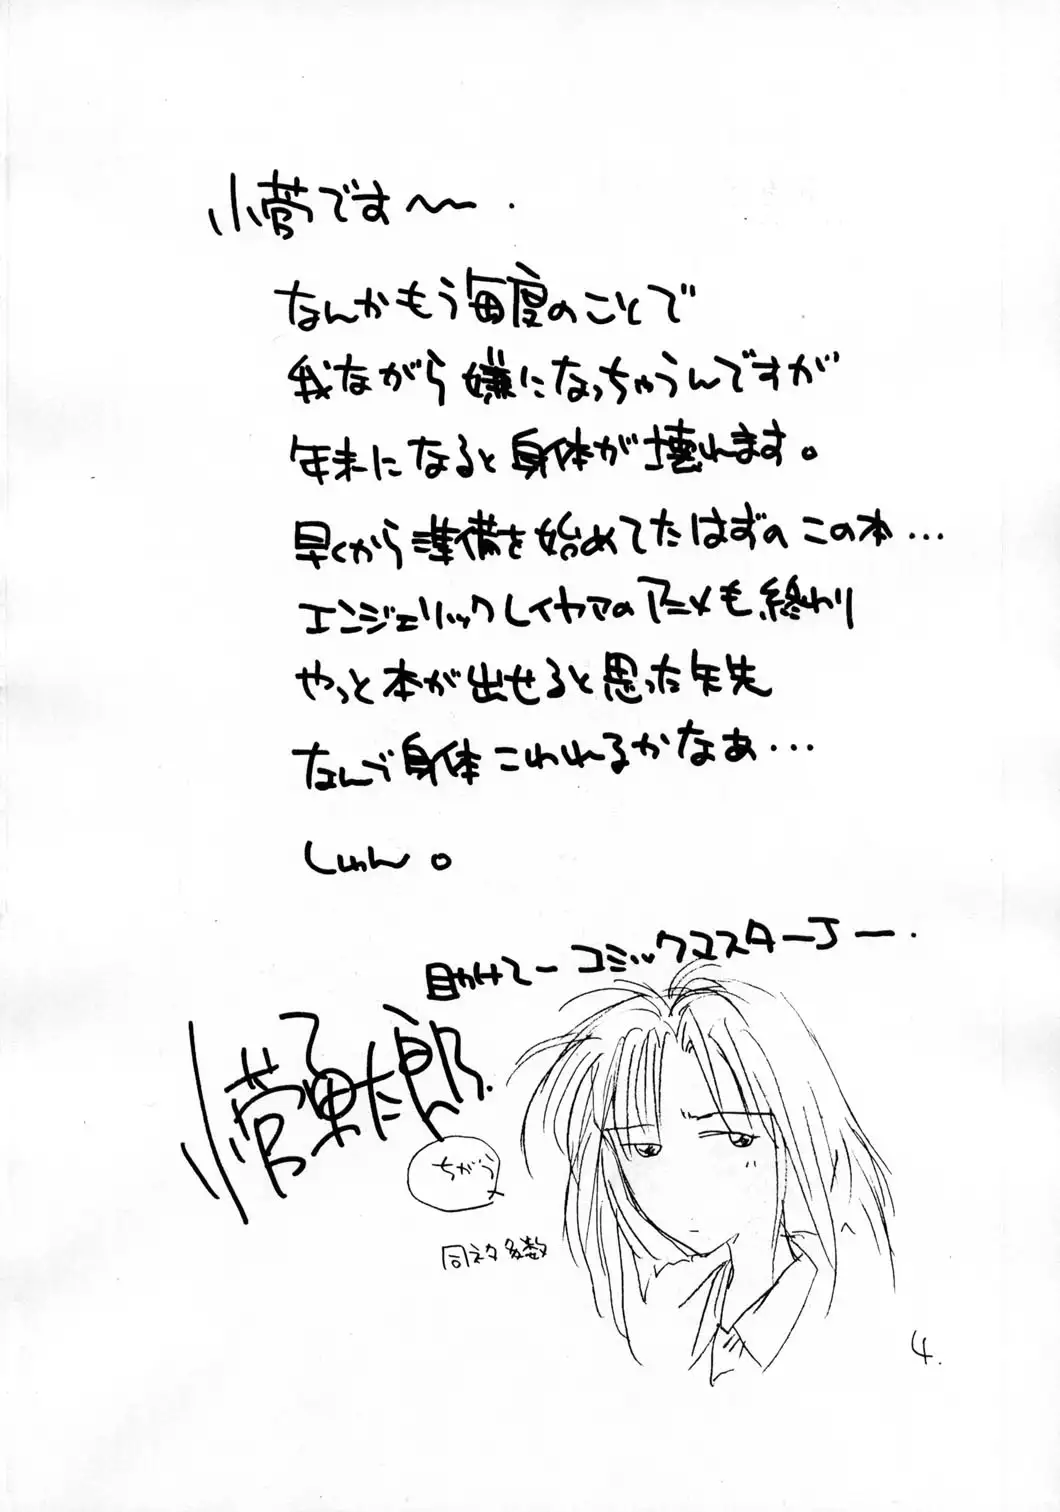 小菅です〜〜.
なんかもう毎度のことで
我ながら嫌になっちゃうんですが
年末になると身体が壊れます。
早くから準備を始めてたはずのこの本…
エンジェリックレイヤァのアニメも終わり
やっと本が出せると思った矢先
なんで身体こわれるかなあ…
しゅん。
助けてーコミックマスターJー.
小菅勇太郎.
ちがう
同ネタ多数
4.